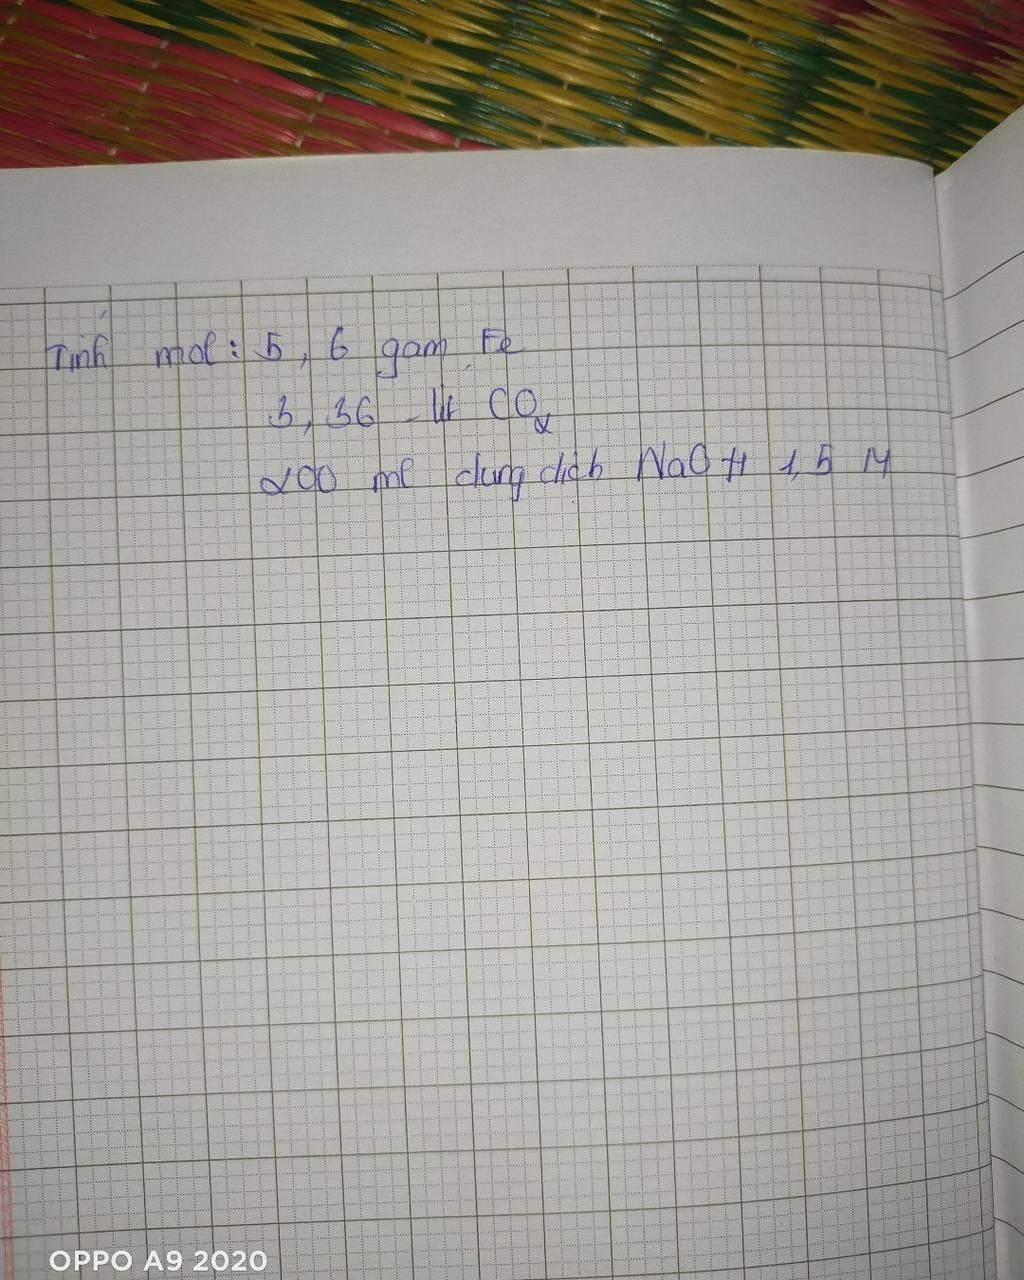 Tính mol: 5,6 gam Fe
3,36 lít CO₂
200 ml dung dịch NaOH 1,5 M
OPPO A9 2020